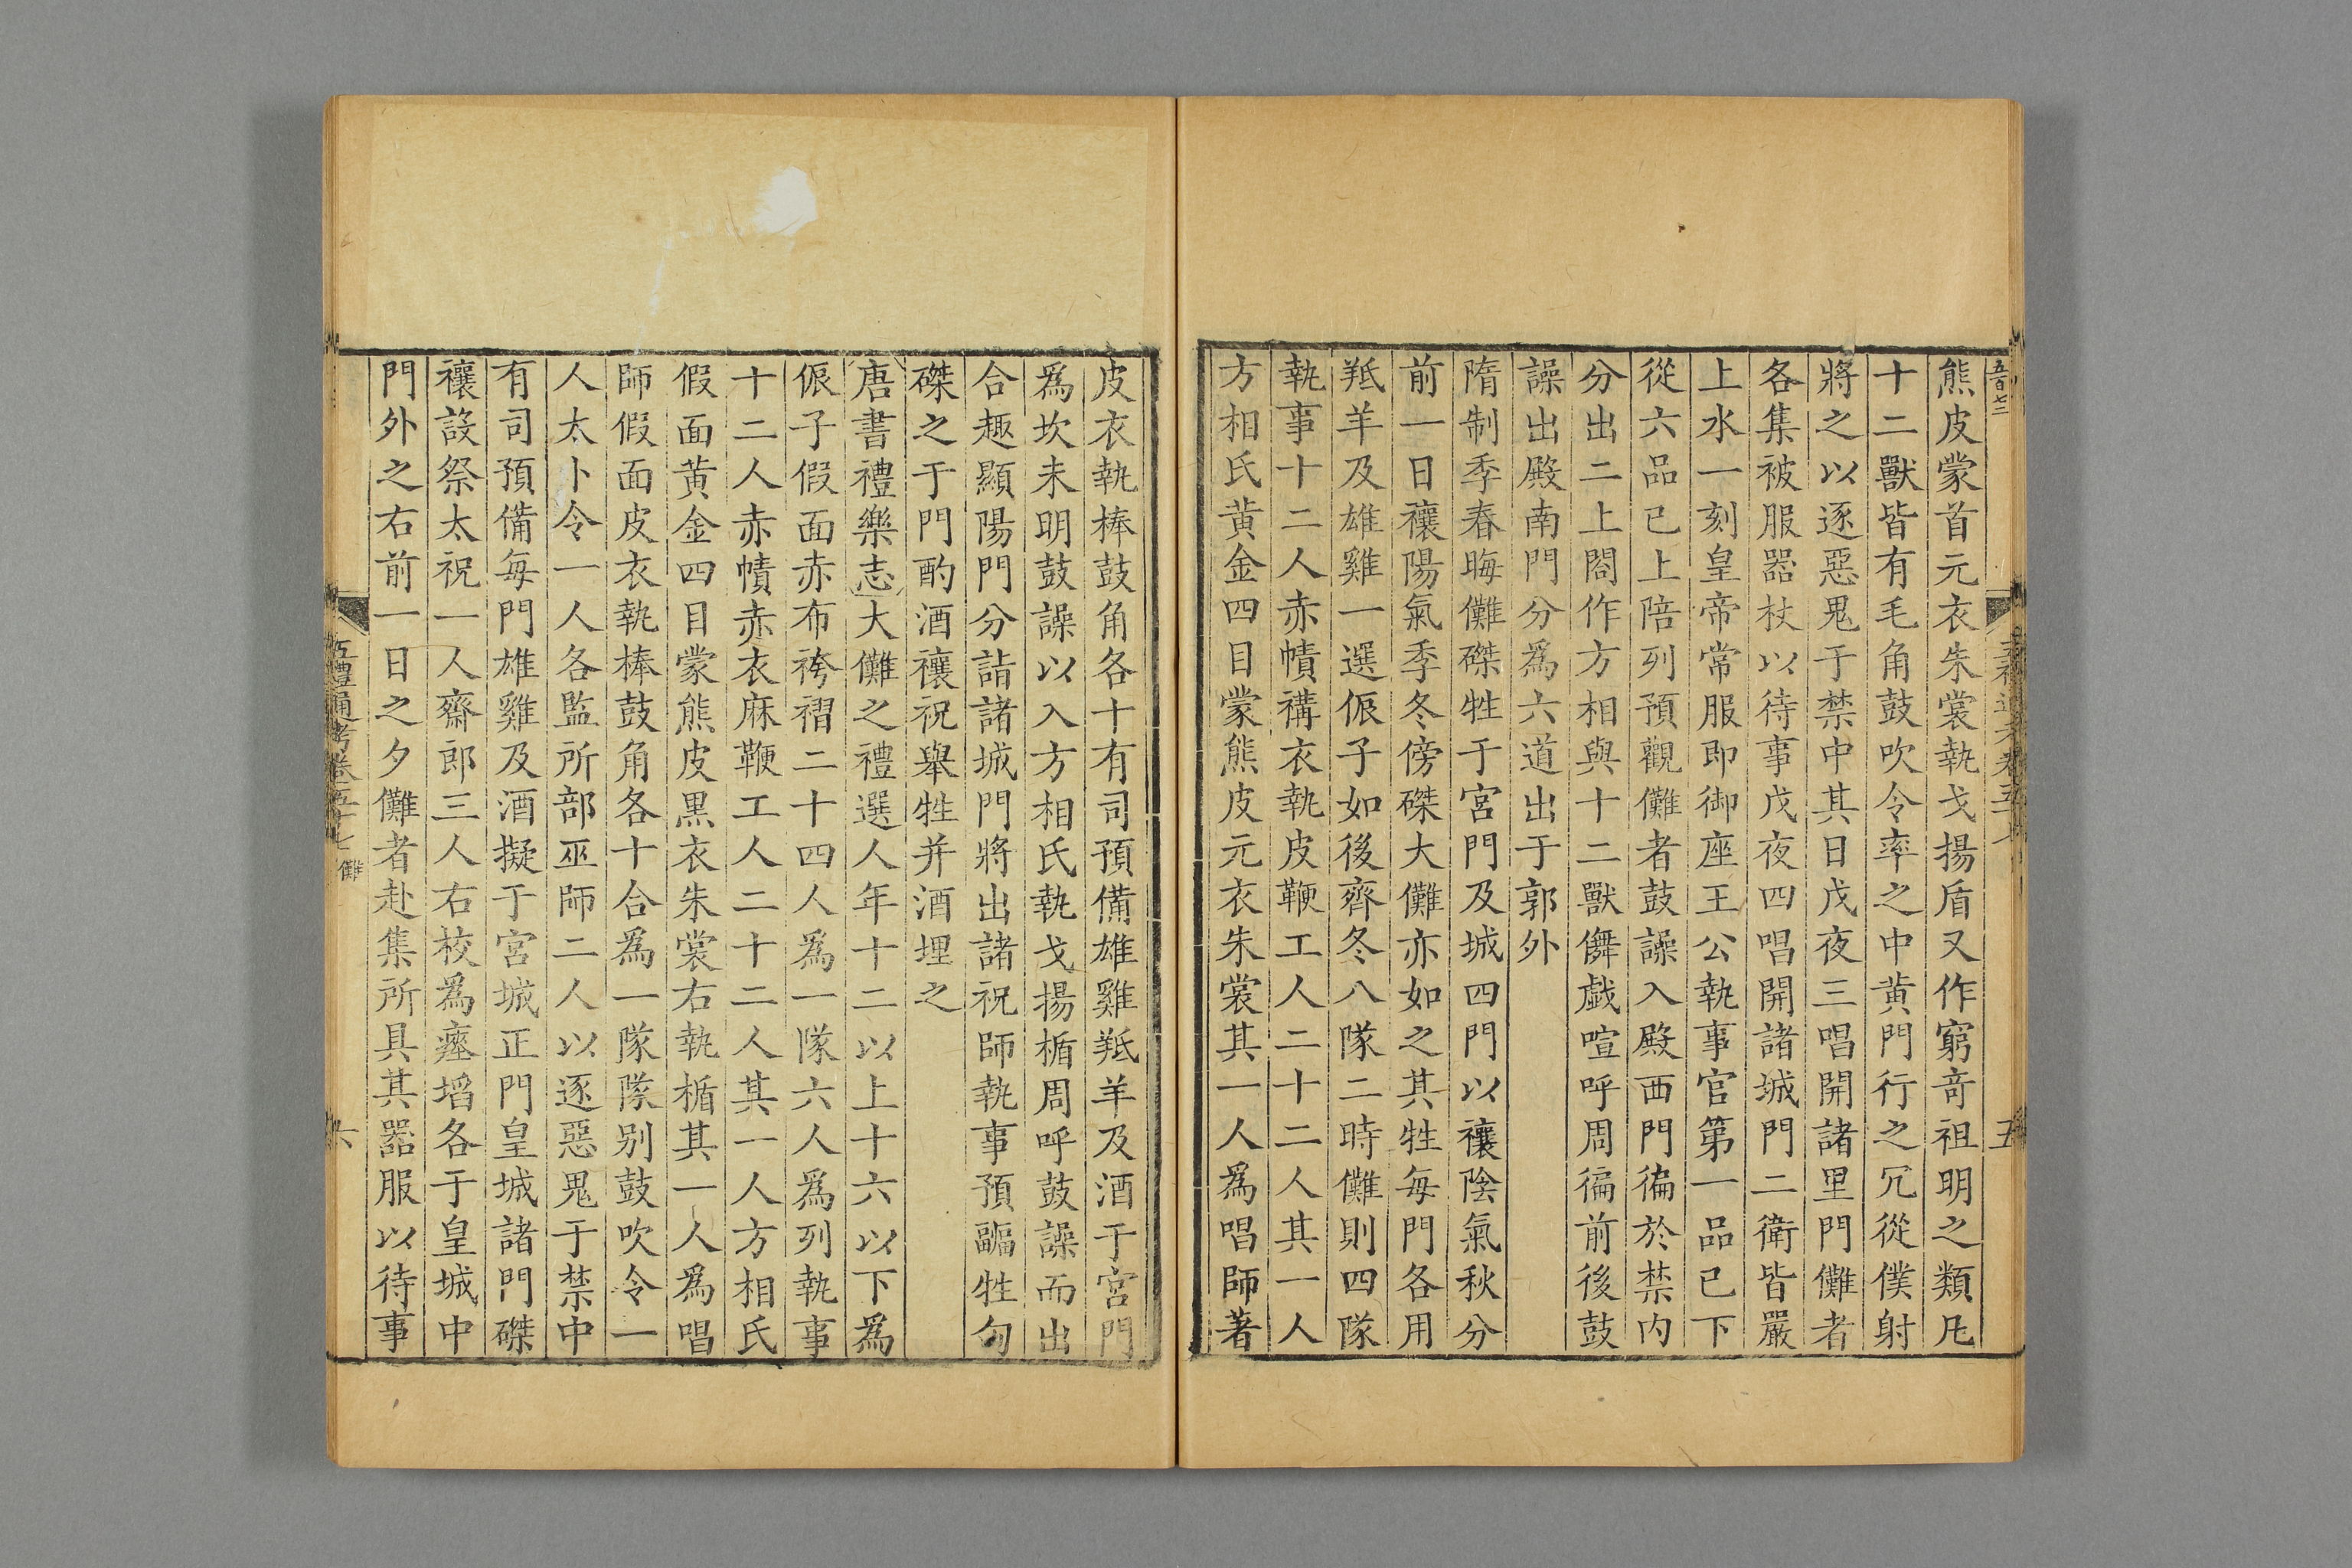 熊皮蒙首元衣朱裳執戈揚盾又作窮竒祖明之類凡
十二獸皆有毛角鼓吹令率之中黄門行之冗從僕射
將之以逐惡鬼于禁中其日戊夜三唱開諸里門儺者
各集被服器杖以待事戊夜四唱開諸城門二衛皆嚴
上水一刻皇帝常服即御座王公執事官第一品已下
從六品已上陪列預觀儺者鼓譟入殿西門徧於禁内
分出二上閤作方相與十二獸儛戯喧呼周徧前後鼓
譟出殿南門分爲六道出于郭外
隋制季春晦儺磔牲于宮門及城四門以禳陰氣秋分
前一日禳陽氣季冬傍磔大儺亦如之其牲每門各用
羝羊及雄雞一選侲子如後齊冬八隊二時儺則四隊
執事十二人赤幘褠衣執皮鞭工人二十二人其一人
方相氏黄金四目蒙熊皮元衣朱裳其一人爲唱師著
皮衣執棒鼓角各十有司預備雄雞羝羊及酒于宮門
爲坎未明鼓譟以入方相氏執戈揚楯周呼鼓譟而出
合趣顯陽門分詣諸城門將出諸祝師執事預疈牲匈
磔之于門酌酒禳祝舉牲并酒埋之
唐書禮樂志大儺之禮選人年十二以上十六以下爲
侲子假面赤布袴褶二十四人爲一隊六人爲列執事
十二人赤幘赤衣麻鞭工人二十二人其一人方相氏
假面黄金四目蒙熊皮黒衣朱裳右執楯其一人爲唱
師假面皮衣執棒鼓角各十合爲一隊隊别鼓吹令一
人太卜令一人各監所部巫師二人以逐惡鬼于禁中
有司預備每門雄雞及酒擬于宮城正門皇城諸門磔
禳設祭太祝一人齋郎三人右校爲瘞埳各于皇城中
門外之右前一日之夕儺者赴集所具其器服以待事
五禮通考卷五十七 儺
六